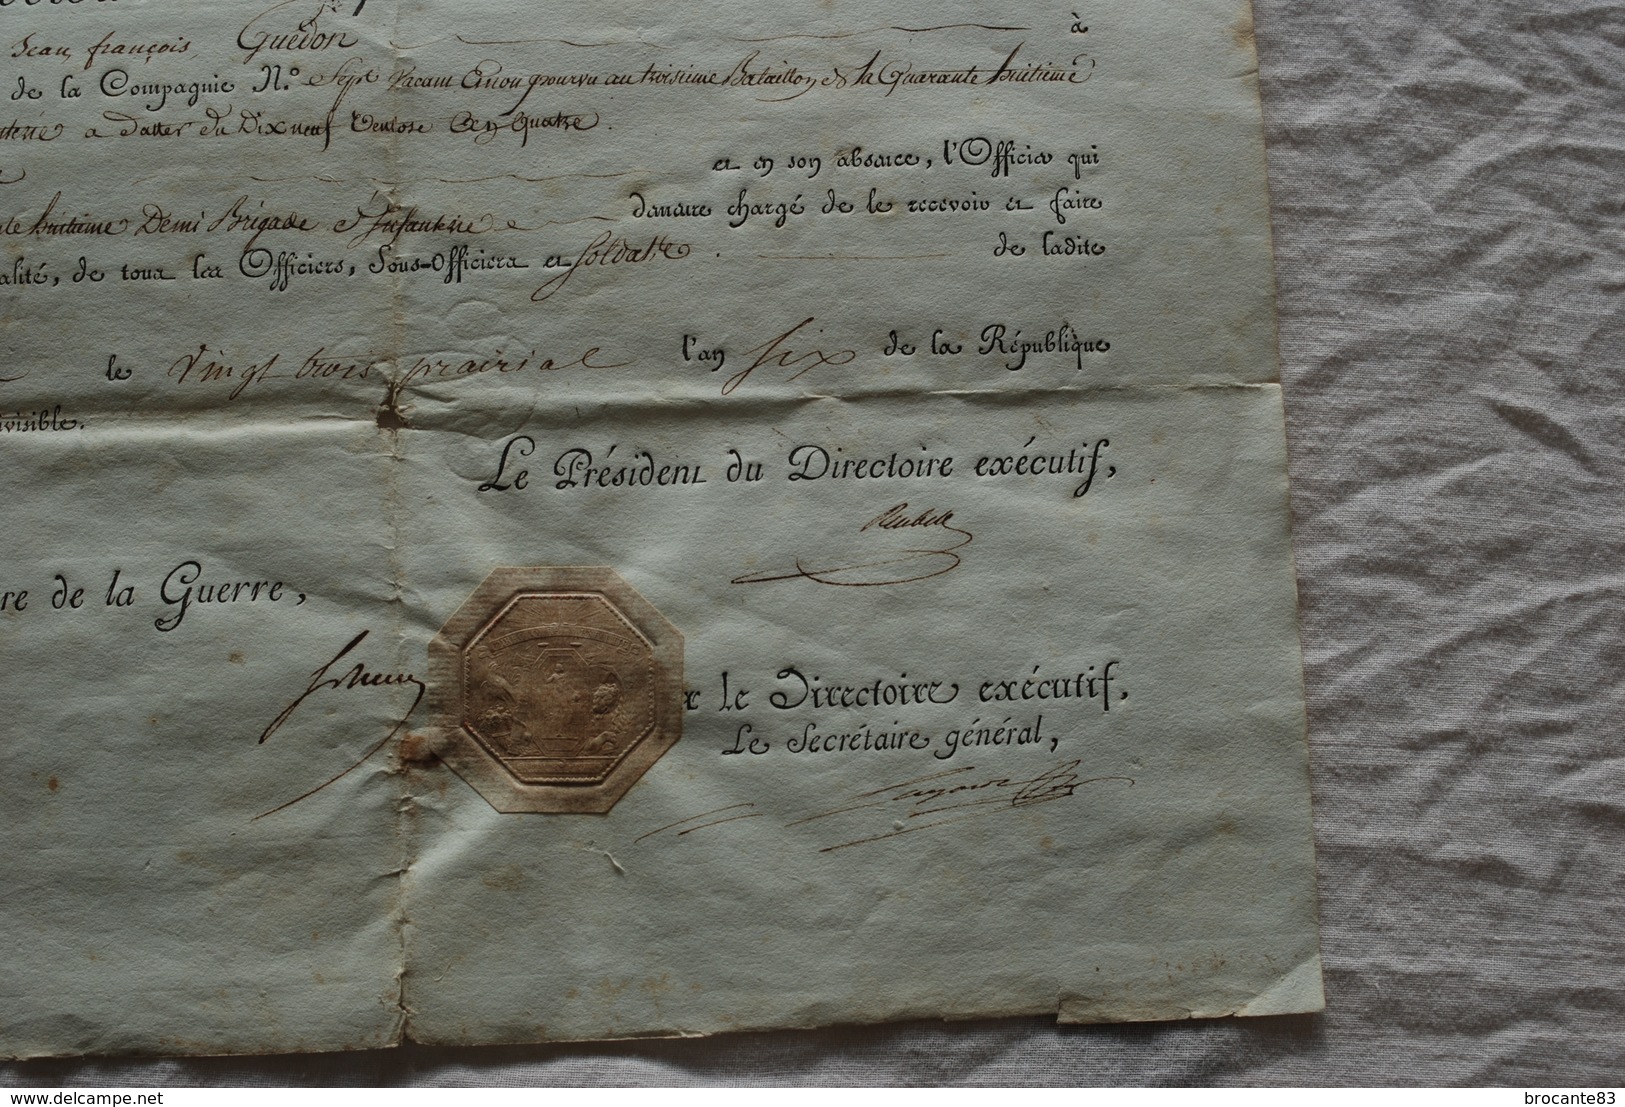 Jean françois, Guedon à
de la Compagnie N.º Sept vacant Et non pourvu au troisieme Bataillon de la Quarante huitieme
terie a datter du Dix neuf Ventose An Quatre.
et en son absence, l'Officier qui
huitieme Demi Brigade d'Infanterie danaire chargé de le recevoir et faire
alité, de tous les Officiers, Sous-Officiers et Soldats de ladite
le Vingt trois prairial l'an six de la République
ivisible.
Le Président du Directoire exécutif,
Reubell
re de la Guerre,
r le Directoire exécutif,
Le Secrétaire général,
delcampe.net
brocante83